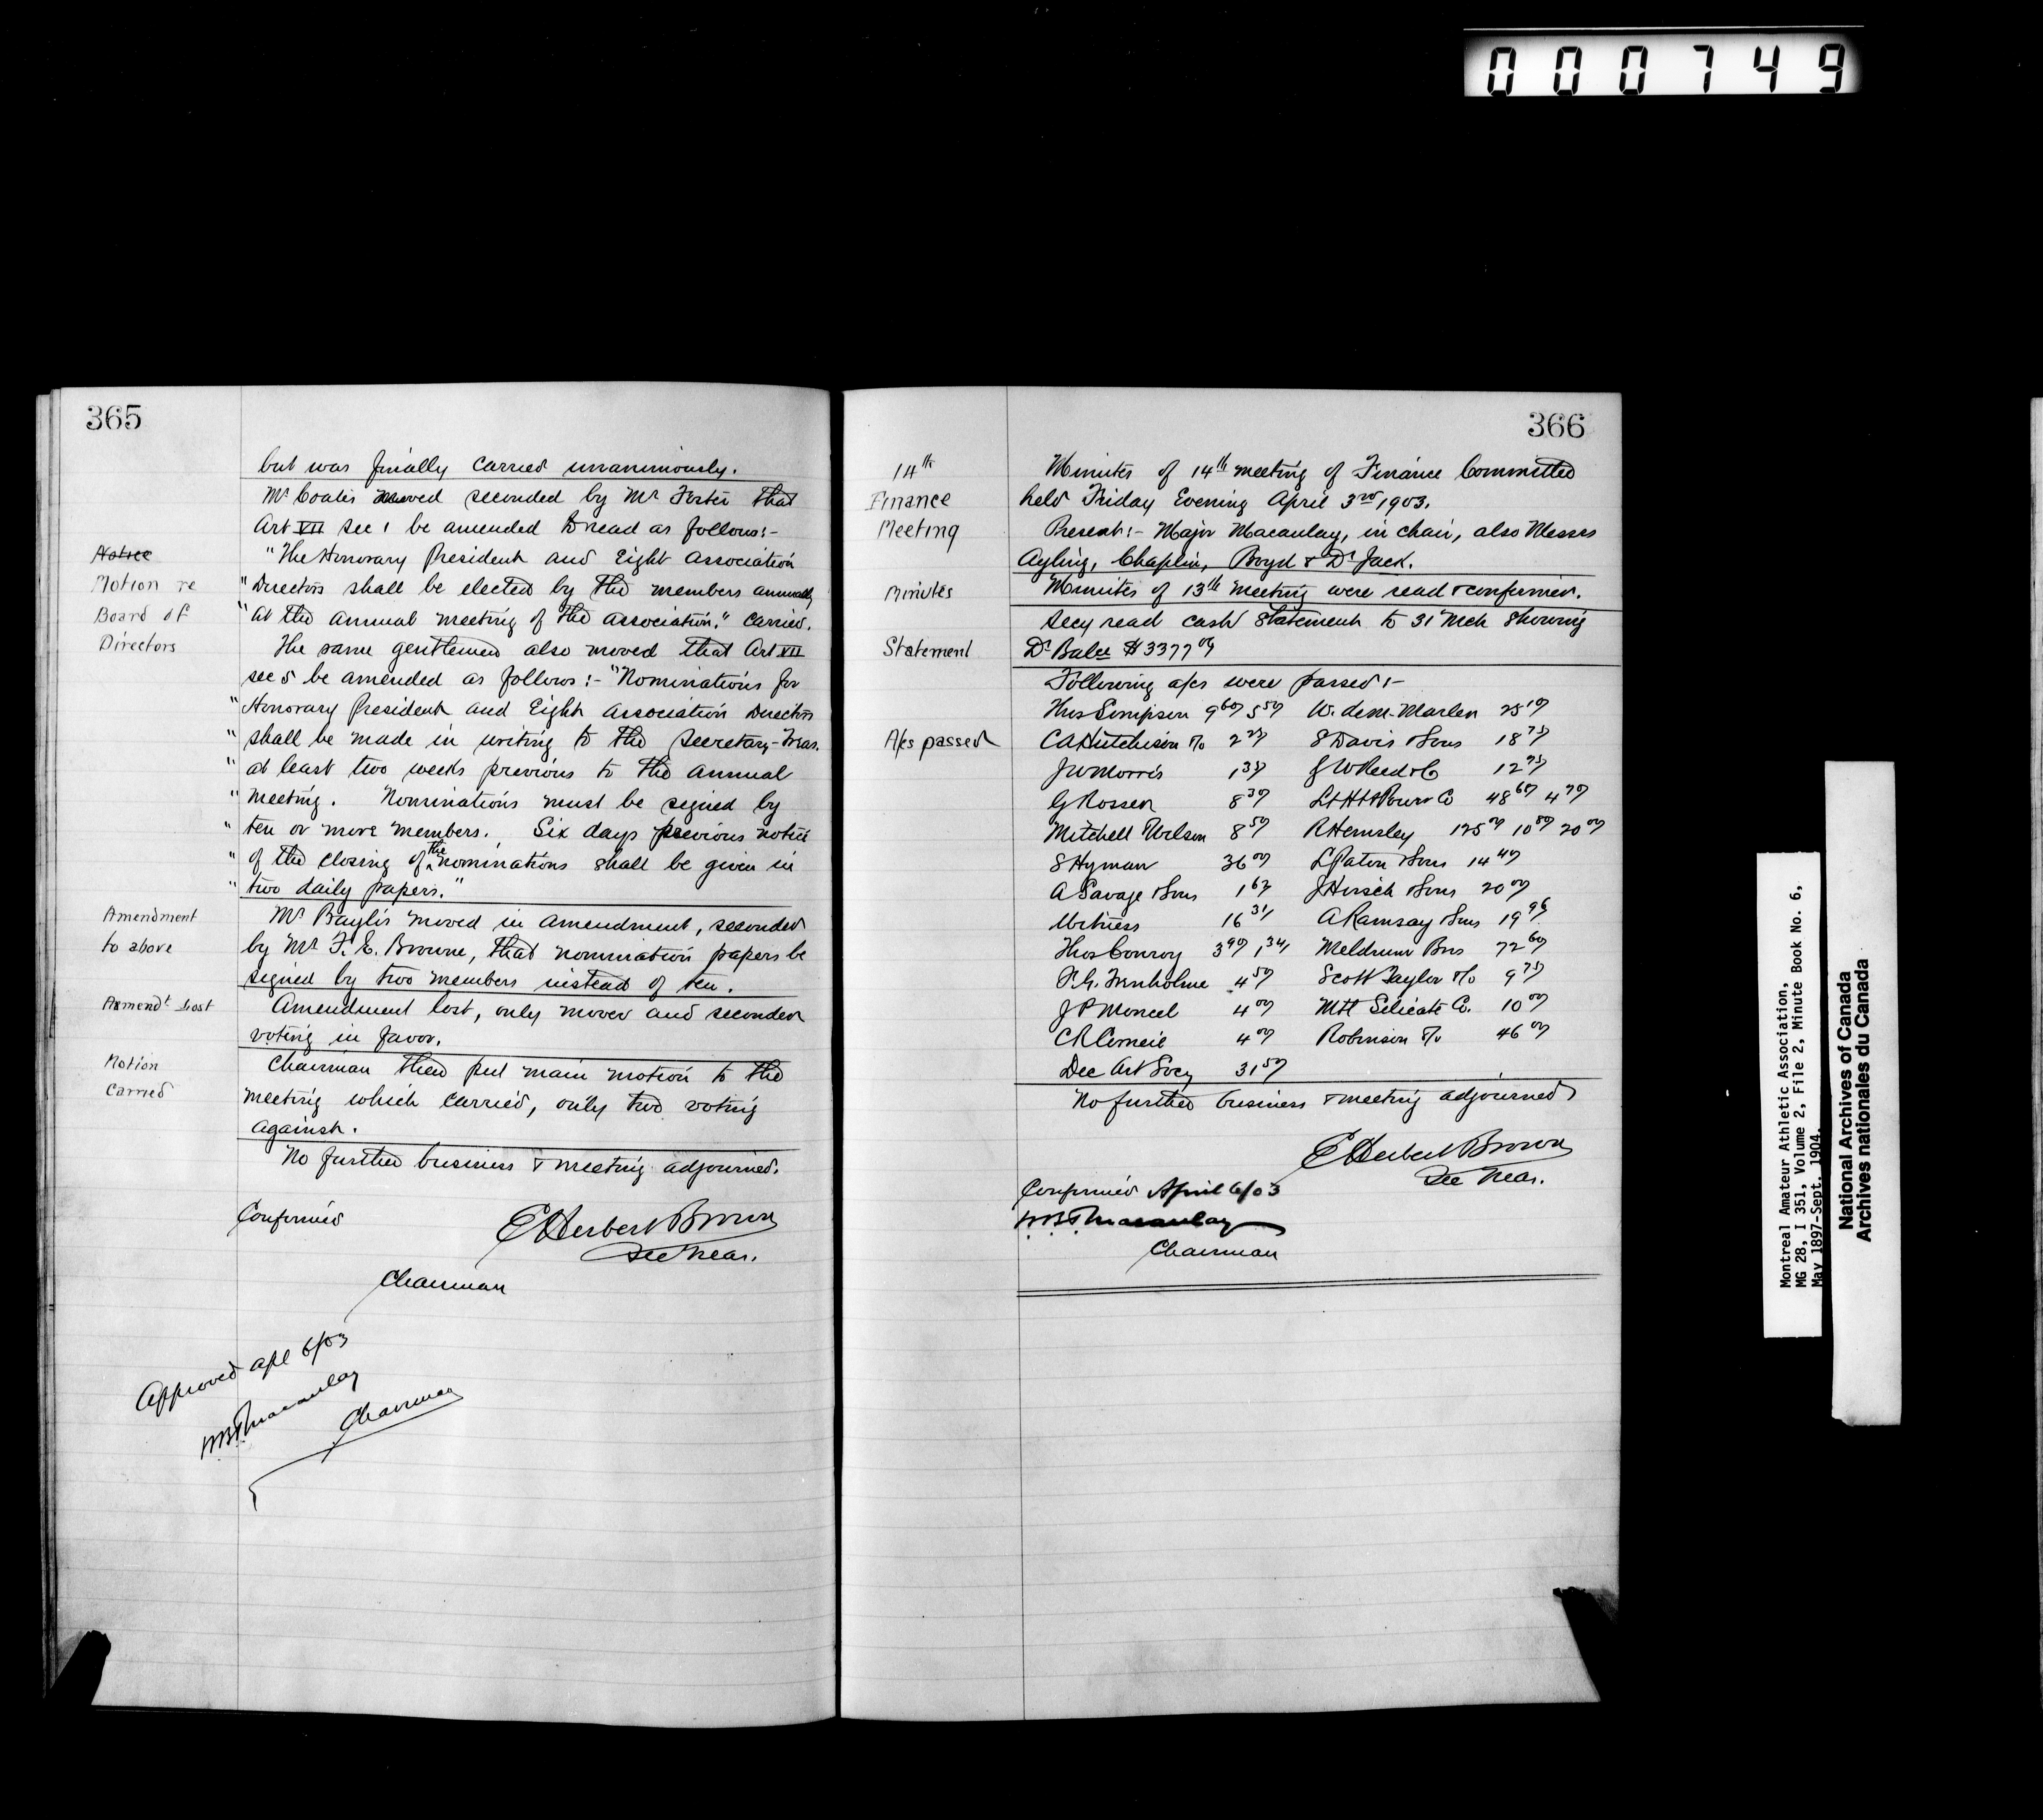 000749
365
but was finally carried unanimously.
Mr Coates moved seconded by Mr Foster that
Art VII sec 1 be amended to read as follows:-
Notice
"The Honorary President and Eight Association
Motion re
"Directors shall be elected by the members annually
Board of
"at the annual meeting of the association." Carried.
Directors
The same gentlemen also moved that Art VII
sec 5 be amended as follows:- "Nominations for
"Honorary President and Eight Association Directors
"shall be made in writing to the Secretary-Treas.
"at least two weeks previous to the annual
"meeting. Nominations must be signed by
"ten or more members. Six days previous notice
"of the closing of the nominations shall be given in
"two daily papers."
Amendment
Mr Baylis moved in amendment, seconded
to above
by Mr F. E. Browne, that nomination papers be
signed by two members instead of ten.
Amendt Lost
Amendment lost, only mover and seconder
voting in favor.
Motion
Chairman then put main motion to the
Carried
meeting which carried, only two voting
against.
No further business & meeting adjourned.
Confirmed
E Herbert Brown
Sec Treas.
Chairman
Approved apl 6/03
WBTMacaulay
Chairman
366
14th
Minutes of 14th meeting of Finance Committee
Finance
held Friday Evening April 3rd 1903.
Meeting
Present:- Major Macaulay, in chair, also Messrs
Ayling, Chaplin, Boyd & Dr Jack.
Minutes
Minutes of 13th meeting were read & confirmed.
Secy read cash statement to 31 Mch showing
Statement
Dr Balce $3377 00
Following a/cs were passed:-
Thos Simpson 9 60 5 50 W. de M. Marler 25 10
A/cs passed
CA Hutchison 2 25 S Davis & Sons 18 75
J W Morris 1 35 J W Reed & Co 12 75
G Rosser 8 30 L H & Power Co 48 60 4 70
Mitchell Wilson 8 50 R Hemsley 125 00 10 80 20 00
S Hyman 36 00 L Paton & Sons 14 40
A Savage & Sons 1 63 J Hirsch & Sons 20 00
Witness 16 31 A Ramsay & Sons 19 96
Thos Conroy 3 90 1 34 Meldrum Bros 72 60
4 50 Scott Taylor 9 75
J P Moncel 4 00 Mtl Silicate Co. 10 00
4 00 Robinson 46 00
Dec Art Socy 31 50
No further business & meeting adjourned
E Herbert Brown
Sec Treas.
Confirmed April 6/03
WBTMacaulay
Chairman
Montreal Amateur Athletic Association,
MG 28, I 351, Volume 2, File 2, Minute Book No. 6,
May 1897-Sept. 1904.
National Archives of Canada
Archives nationales du Canada